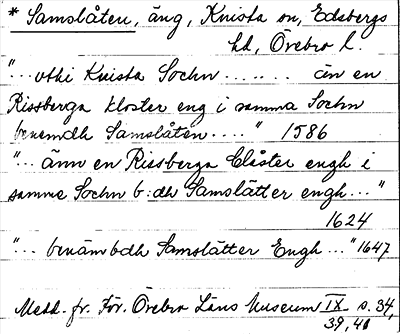 * Samslåten, äng, Knista sn, Edsbergs
hd, Örebro l.
"... vthi Knista Sochn ....... än en
Rissberga kloster eng i samma Sochn
benemdh Samslåten...." 1586
"... änn en Rissberga Clåster engh i
samma Sochn b:dh Samslätter engh..."
1624
"... benämbdh Samslätter Engh..." 1647
Medd. fr. För. Örebro Läns Museum IX s. 34,
39, 40